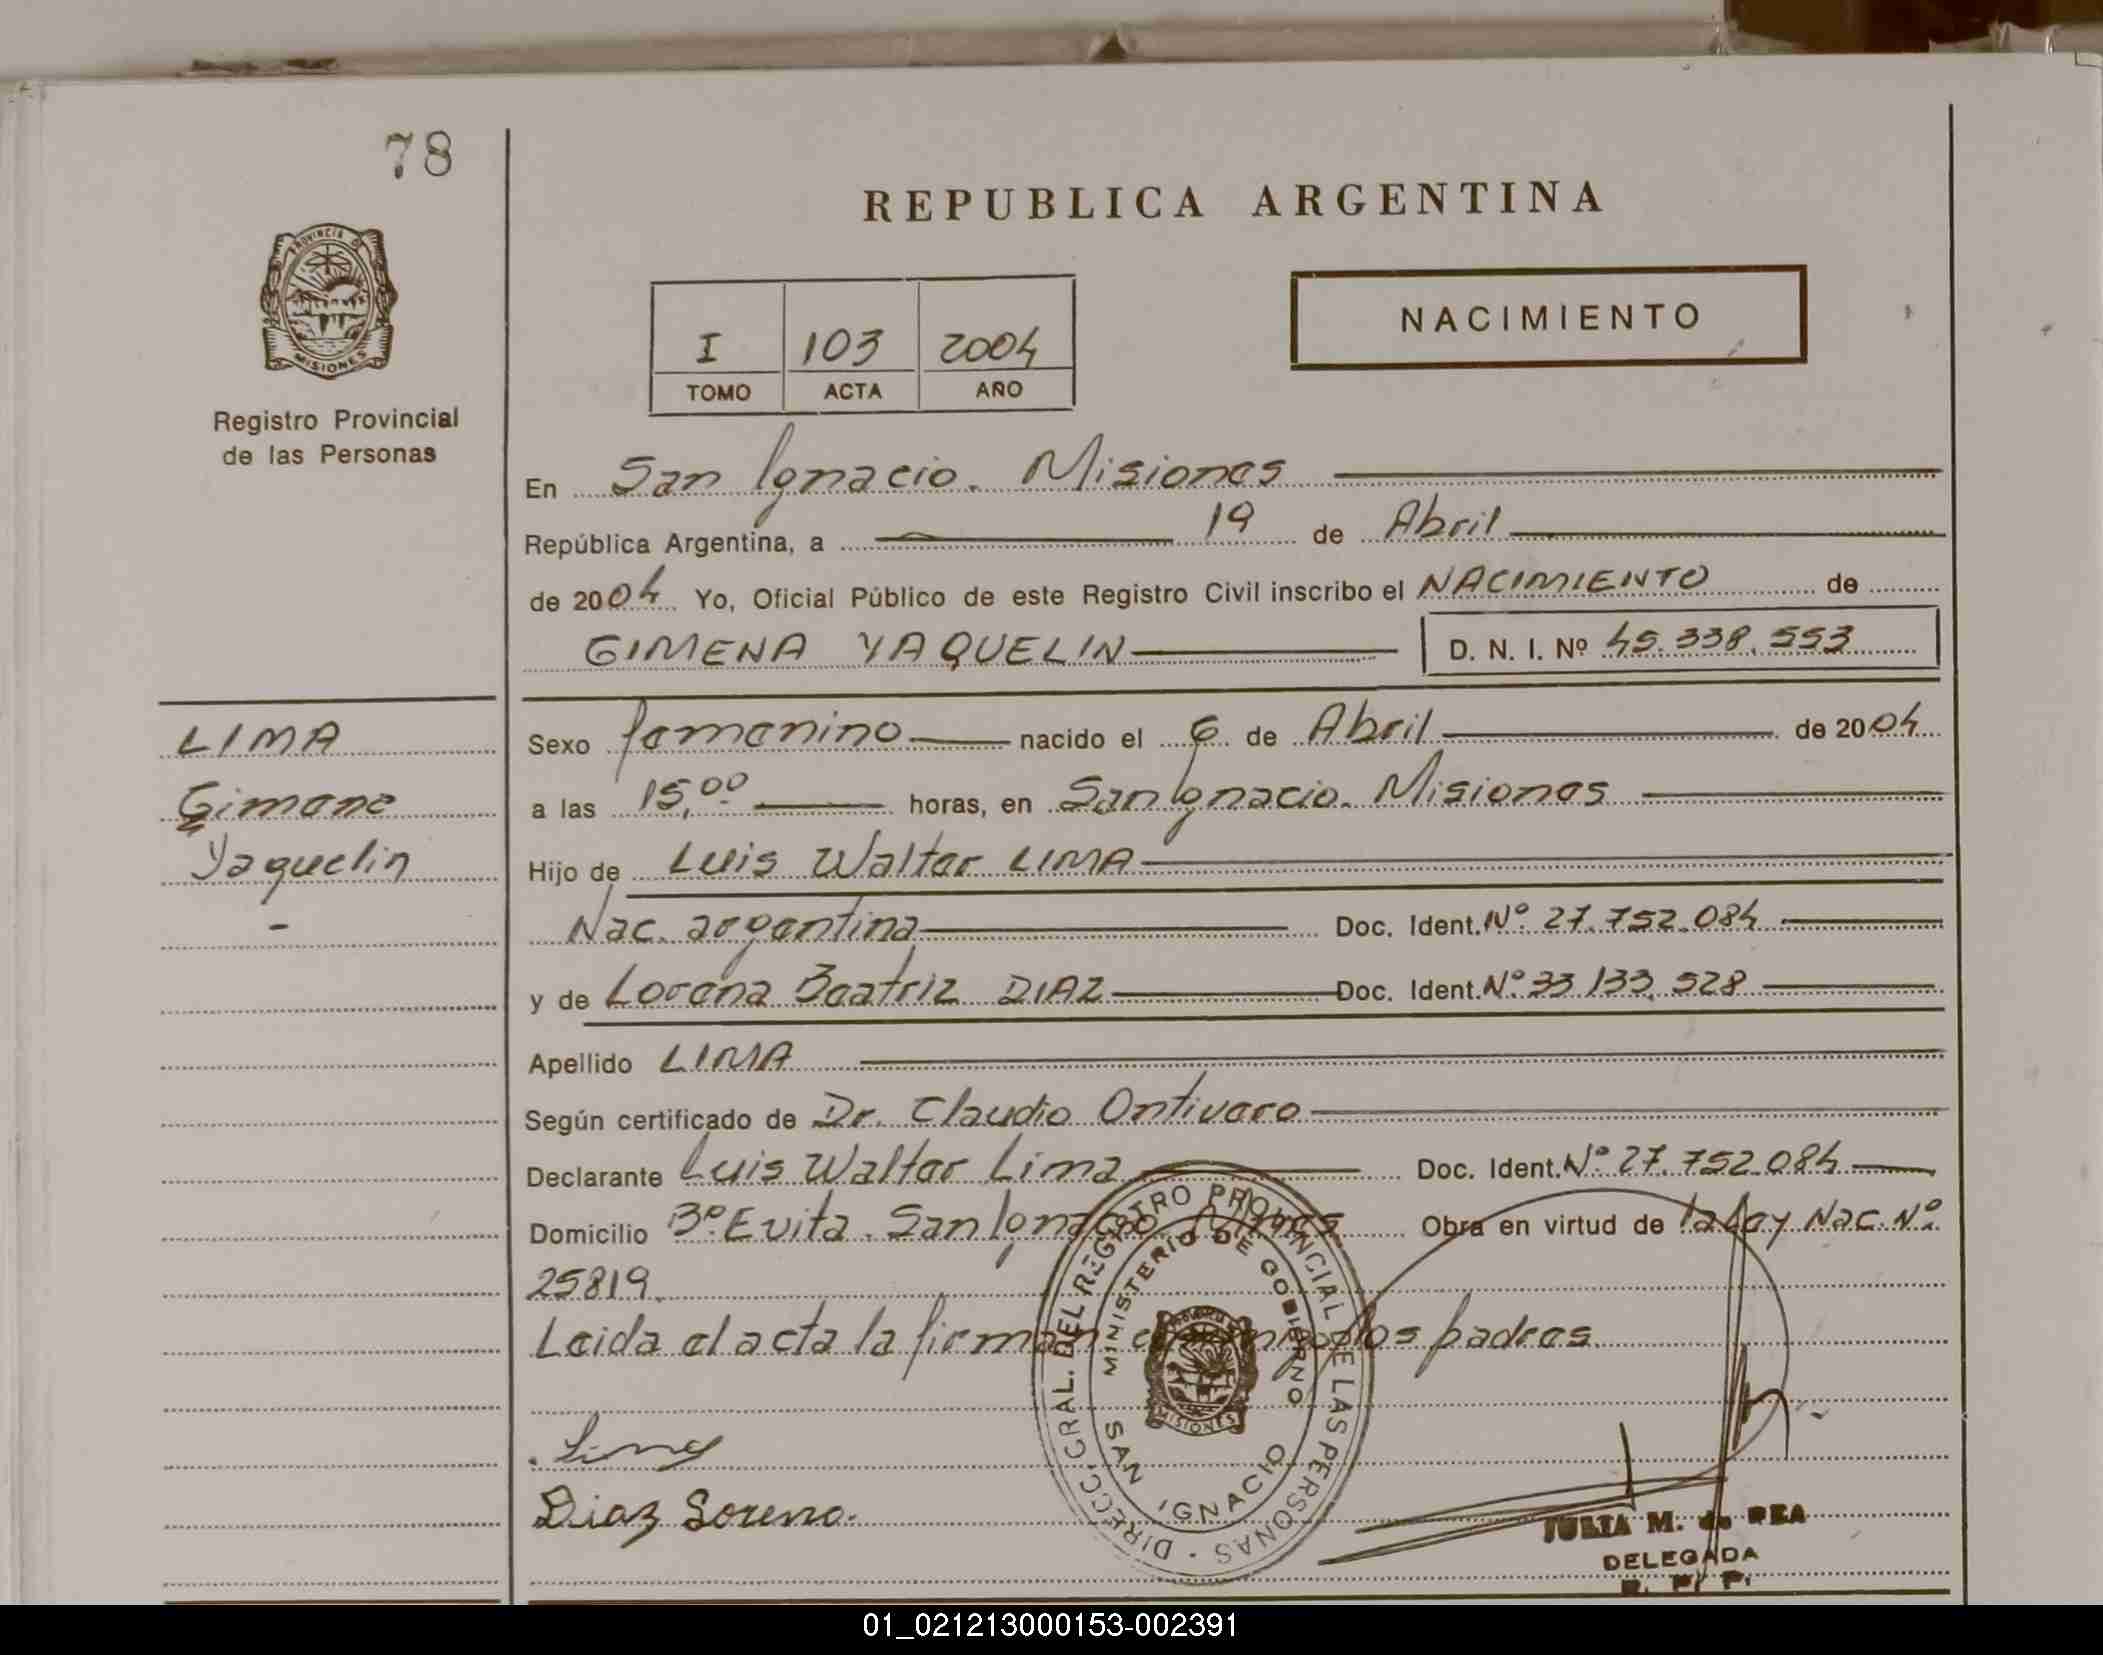 78
REPUBLICA ARGENTINA
PROVINCIA DE
MISIONES
Registro Provincial
de las Personas
I 103 2004
TOMO ACTA AÑO
NACIMIENTO
En San Ignacio. Misiones
República Argentina, a 19 de Abril
de 2004 Yo, Oficial Público de este Registro Civil inscribo el NACIMIENTO de
GIMENA YAQUELIN D. N. I. Nº 45.338.553
LIMA
Gimena
Yaquelin
-
Sexo femenino nacido el 6 de Abril de 2004
a las 15,00 horas, en San Ignacio. Misiones
Hijo de Luis Walter LIMA
Nac. argentina Doc. Ident. Nº. 27.752.084
y de Lorena Beatriz DIAZ Doc. Ident. Nº. 33.133.528
Apellido LIMA
Según certificado de Dr. Claudio Ontivero
Declarante Luis Walter Lima Doc. Ident. Nº. 27.752.084
Domicilio Bº. Evita. San Ignacio Obra en virtud de la Ley Nac. Nº
25819.
Leida el acta la firman los padres.
Diaz Lorena.
DIRECC. GRAL. DEL REGISTRO PROVINCIAL DE LAS PERSONAS
MINISTERIO DE GOBIERNO
MISIONES
SAN IGNACIO
JULIA M. de REA
DELEGADA
R. P. P.
01_021213000153-002391